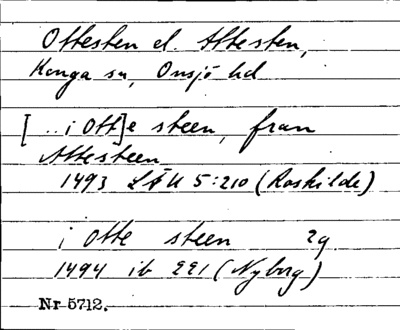 Ottesten el. Attesten,
Konga sn, Onsjö hd
[... i Ott]e steen, fran
Attesteen
1493 LÅU 5:210 (Roskilde)
i Otte steen 2g
1494 ib 221 (Nyborg)
Nr 5712.